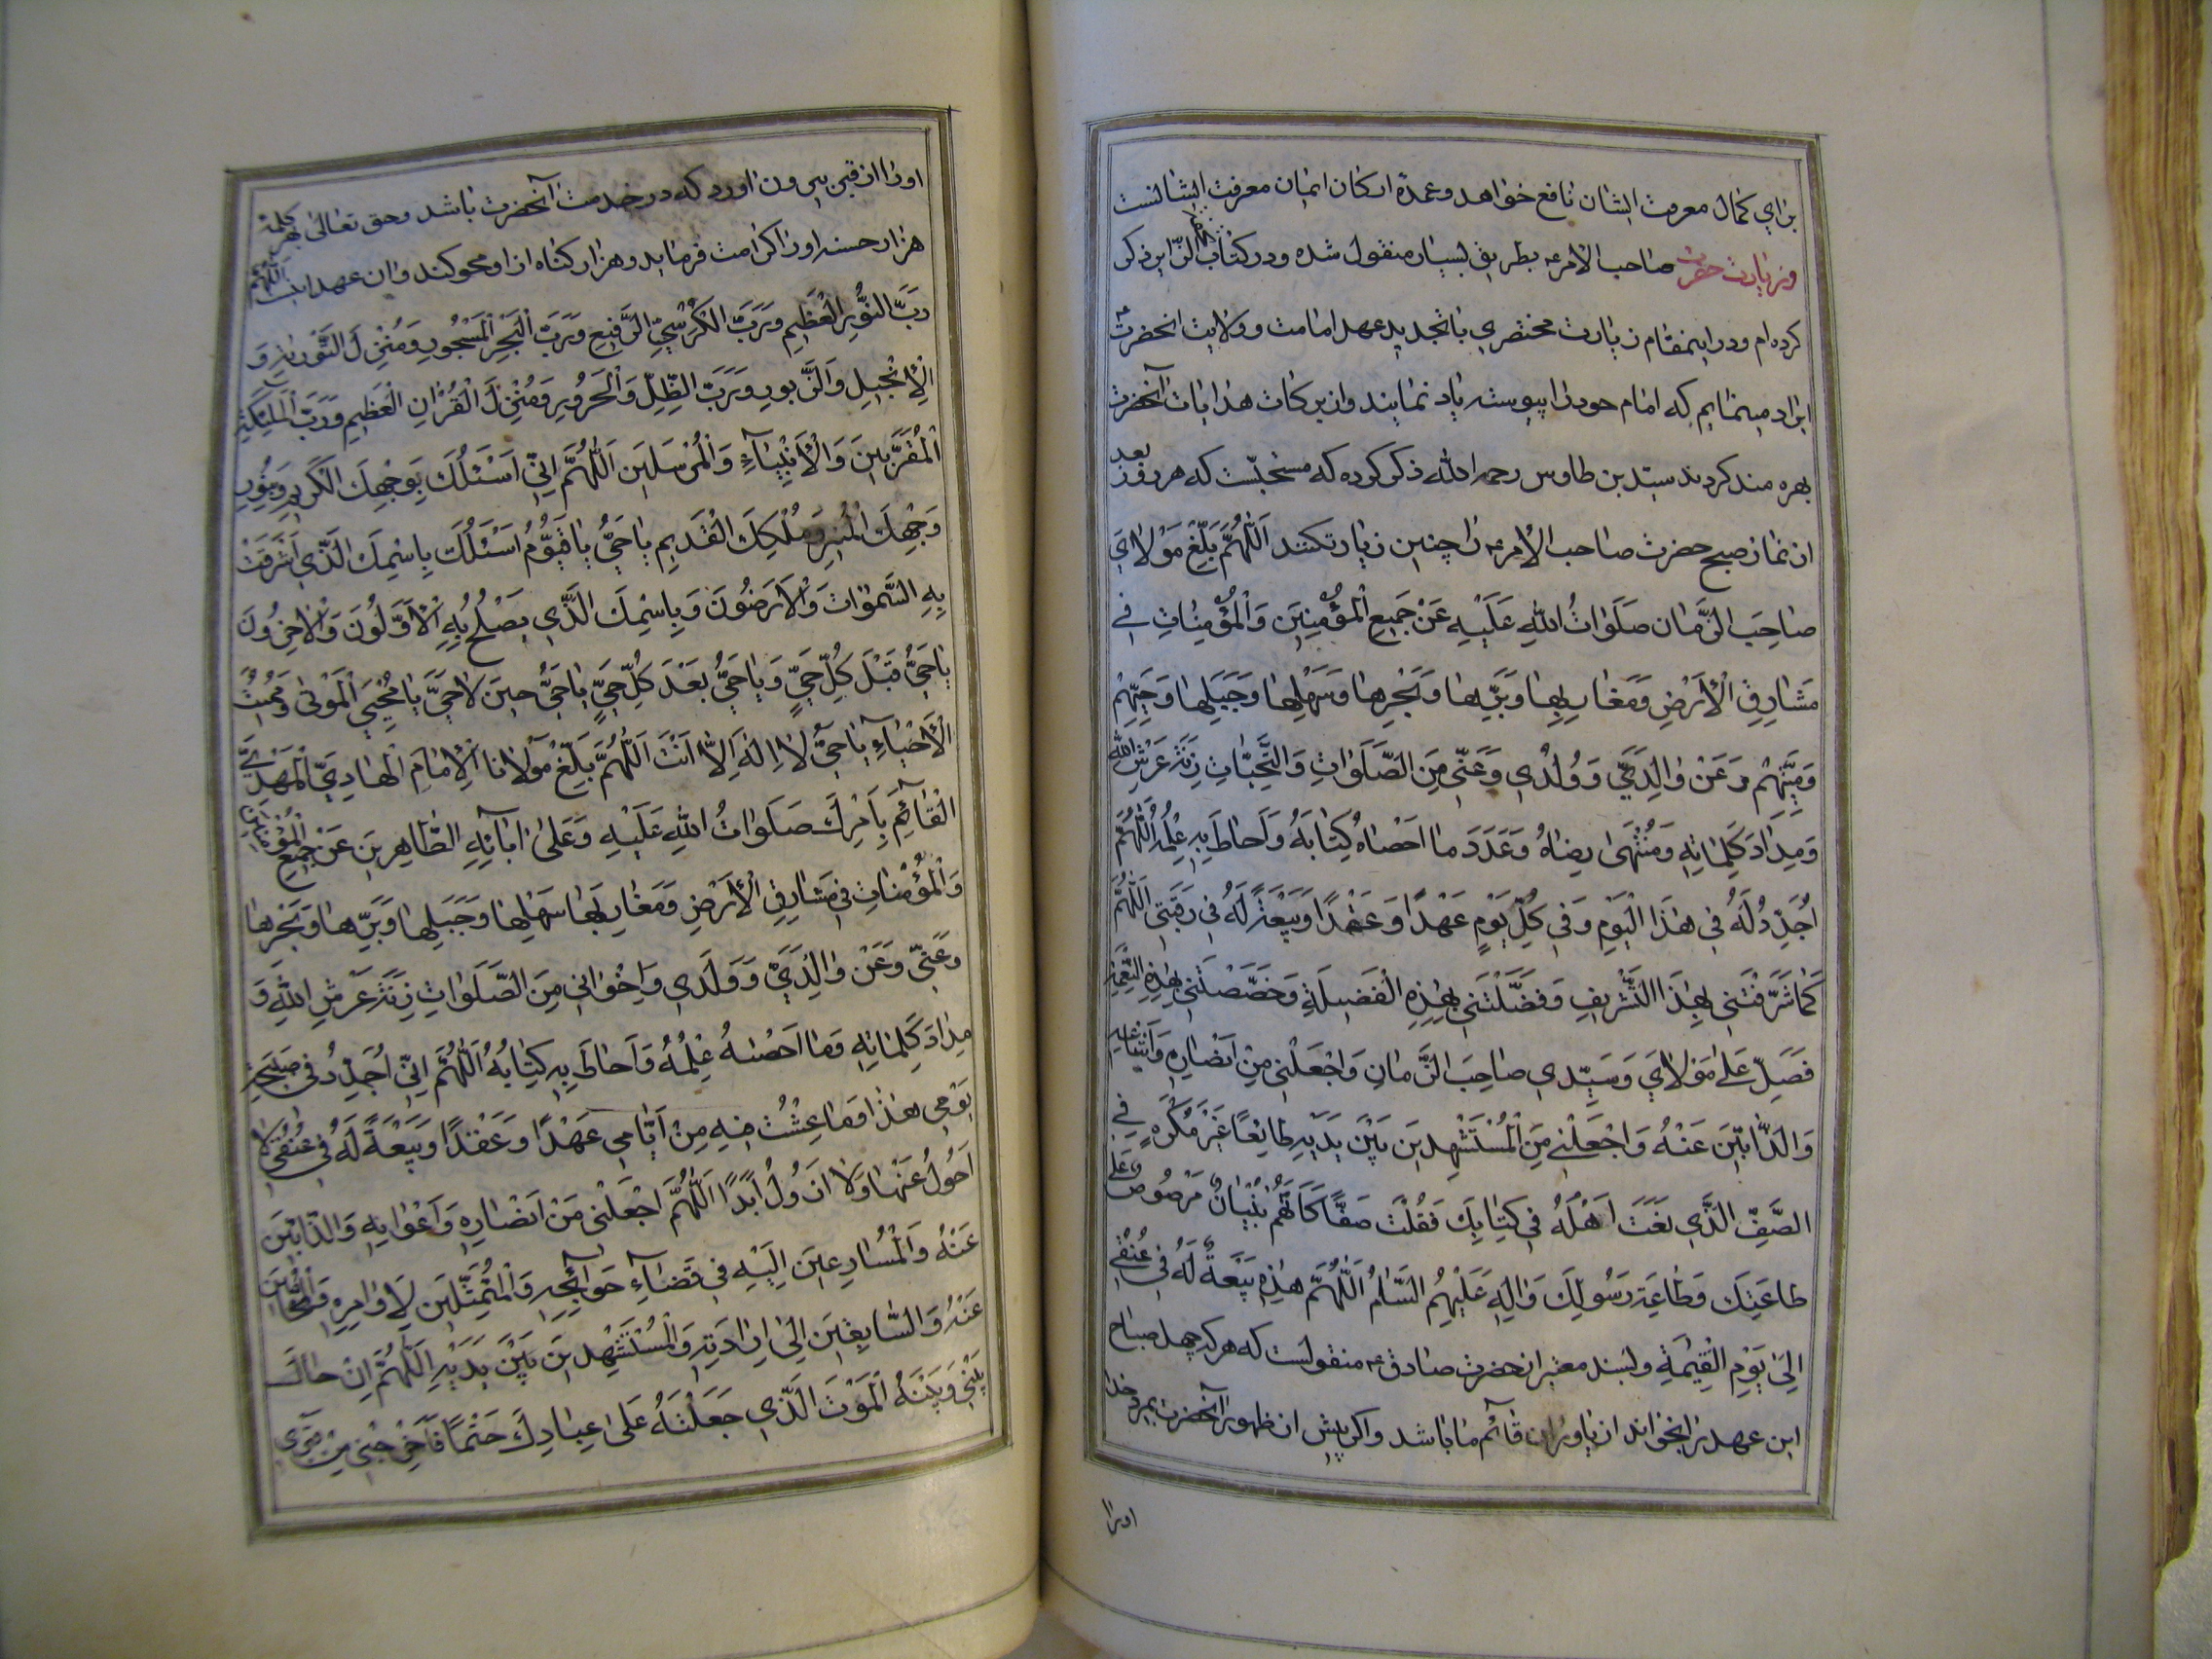 برای کمال معرفت ایشان نافع خواهد و عمدۀ ارکان ایمان معرفت ایشانست
و زیارت حضرت صاحب الامر ع بطریق بسیار منقول شده و در کتاب الزایر ذکر
کرده ام و در اینمقام زیارت مختصری با تجدید عهد امامت و ولایت انحضرت ع
ایراد مینمایم که امام خود را پیوسته یاد نمایند و از برکات هدایات آنحضرت
بهره مند کردند سید بن طاوس رحمه الله ذکر کرده که مستحبّست که هر روز بعد
از نماز صبح حضرت صاحب الأمر ع را چنین زیارت کنند اَللّٰهُمَّ بَلِّغْ مَوْلایَ
صاحِبَ الزَّمان صَلَوٰاتُ اللهِ عَلَیْهِ عَنْ جَمیعِ الْمُؤْمِنینَ وَالْمُؤْمِنٰاتِ فی
مَشارِقِ الْأَرْضِ وَمَغارِبِها وَبَرِّها وَبَحْرِها وَسَهْلِها وَجَبَلِها وَحَیِّهِمْ
وَمَیِّتِهِمْ وَعَنْ وٰالِدَیَّ وَوُلْدی وَعَنّی مِنَ الصَّلَوٰاتِ وَالتَّحِیّٰاتِ زِنَةَ عَرْشِ اللهِ
وَمِدٰادَ کَلِمٰاتِهِ وَمُنْتَهیٰ رِضٰاهُ وَعَدَدَ ما اَحْصٰاهُ کِتٰابُهُ وَاَحاطَ بِهِ عِلْمُهُ اَللّٰهُمَّ
اُجَدِّدُ لَهُ فی هٰذَا الْیَوْمِ وَفی کُلِّ یَوْمٍ عَهْدًا وَعَقْدًا وَبَیْعَةً لَهُ فی رَقَبَتی اَللّٰهُمَّ
کَمٰا شَرَّفْتَنی بِهٰذَا التَّشْریفِ وَفَضَّلْتَنی بِهٰذِهِ الْفَضیلَةِ وَخَصَّصْتَنی بِهٰذِهِ النِّعْمَةِ
فَصَلِّ عَلیٰ مَوْلایَ وَسَیِّدی صاحِبَ الزَّمانِ وَاجْعَلْنی مِنْ اَنْصٰارِهِ وَاَشْیٰاعِهِ
وَالذّٰابّینَ عَنْهُ وَاجْعَلْنی مِنَ الْمُسْتَشْهِدینَ بَیْنَ یَدَیْهِ طایِعًا غَیْرَ مُکْرَهٍ فی
الصَّفِّ الَّذی نَعَتَّ اَهْلَهُ فی کِتٰابِكَ فَقُلْتَ صَفًّا کَاَنَّهُمْ بُنْیٰانٌ مَرْصُوصٌ عَلیٰ
طاعَتِكَ وَطٰاعَةِ رَسُولِكَ وَاٰلِهِ عَلَیْهِمُ السَّلٰمُ اَللّٰهُمَّ هٰذِهِ بَیْعَةٌ لَهُ فی عُنُقی
اِلیٰ یَوْمِ الْقِیٰمَةِ و بسند معتبر از حضرت صادق ع منقولست که هر که چهل صباح
این عهد را بخواند از یاوران قائم ما باشد و اکر پیش از ظهور آنحضرت بمیرد خدا
اورا
اورا از قبر بیرون اورد که در خدمت آنحضرت باشد و حق تعالی بهر کلمه
هزار حسنه اورا کرامت فرماید و هزار کناه از او محو کند و ان عهد اینست اَللّٰهُمَّ
رَبَّ النُّورِ الْعَظیمِ وَرَبَّ الْکُرْسِیِّ الرَّفیعِ وَرَبَّ الْبَحْرِ الْمَسْجُورِ وَمُنْزِلَ التَّوْرٰیةِ وَ
الْاِنْجیلِ وَالزَّبورِ وَرَبَّ الظِّلِّ وَالْحَرُورِ وَمُنْزِلَ الْقُرْاٰنِ الْعَظیمِ وَرَبَّ الْمَلٰئِکَةِ
الْمُقَرَّبینَ وَالْأَنْبِیٰآءِ وَالْمُرْسَلینَ اَللّٰهُمَّ اِنّی اَسْئَلُكَ بِوَجْهِكَ الْکَریمِ وَبِنُورِ
وَجْهِكَ الْمُنیرِ وَمُلْکِكَ الْقَدیمِ یٰا حَیُّ یٰا قَیُّومُ اَسْئَلُكَ بِاسْمِكَ الَّذی اَشْرَقَتْ
بِهِ السَّمٰوٰاتُ وَالْاَرَضُونَ وَبِاسْمِكَ الَّذی یَصْلُحُ بِهِ الْاَوَّلُونَ وَالْاٰخِرُونَ
یٰا حَیُّ قَبْلَ کُلِّ حَیٍّ وَیٰا حَیُّ بَعْدَ کُلِّ حَیٍّ یٰا حَیُّ حینَ لاٰ حَیَّ یٰا مُحْیِیَ الْمَوْتیٰ وَمُمیتَ
الْأَحْیٰاءِ یٰا حَیُّ لاٰ اِلٰهَ اِلاّٰ اَنْتَ اَللّٰهُمَّ بَلِّغْ مَوْلاٰنَا الْاِمٰامَ الْهٰادِیَ الْمَهْدِیَّ
الْقٰآئِمَ بِاَمْرِكَ صَلَوٰاتُ اللهِ عَلَیْهِ وَعَلیٰ اٰبٰآئِهِ الطّٰاهِرینَ عَنْ جَمیعِ الْمُؤْمِنینَ
وَالْمُؤْمِنٰاتِ فی مَشارِقِ الْأَرْضِ وَمَغٰارِبِهٰا سَهْلِهٰا وَجَبَلِهٰا وَبَرِّهٰا وَبَحْرِهٰا
وَعَنّی وَعَنْ وٰالِدَیَّ وَوَلَدی وَاِخْوٰانی مِنَ الصَّلَوٰاتِ زِنَةَ عَرْشِ اللهِ وَ
مِدٰادَ کَلِمٰاتِهِ وَمٰا اَحْصٰهُ عِلْمُهُ وَاَحٰاطَ بِهِ کِتٰابُهُ اَللّٰهُمَّ اِنّی اُجَدِّدُ فی صَبیحَةِ
یَوْمی هٰذٰا وَمٰا عِشْتُ فیهِ مِنْ اَیّٰامی عَهْدًا وَعَقْدًا وَبَیْعَةً لَهُ فی عُنُقی لاٰ
اَحُولُ عَنْهٰا وَلاٰ اَزُولُ اَبَدًا اَللّٰهُمَّ اجْعَلْنی مِنْ اَنْصٰارِهِ وَاَعْوٰانِهِ وَالذّٰابّینَ
عَنْهُ وَالْمُسٰارِعینَ اِلَیْهِ فی قَضٰآءِ حَوٰآئِجِهِ وَالْمُتَمَثِّلینَ لِاَوٰامِرِهِ وَالْمُحٰامینَ
عَنْهُ وَالسّٰابِقینَ اِلیٰ اِرٰادَتِهِ وَالْمُسْتَشْهِدینَ بَیْنَ یَدَیْهِ اَللّٰهُمَّ اِنْ حٰالَ
بَیْنی وَبَیْنَهُ الْمَوْتُ الَّذی جَعَلْتَهُ عَلیٰ عِبٰادِكَ حَتْمًا فَاَخْرِجْنی مِنْ قَبْری